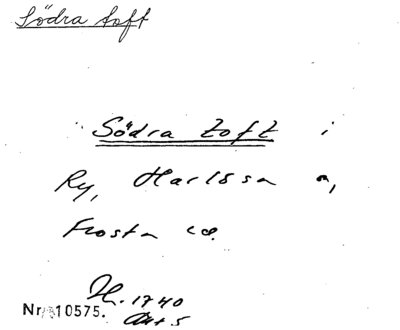 Södra toft
Södra toft i
Ry, Harlösa s,
Frosta hd.
H. 1740
Akt 5
Nr 10575.